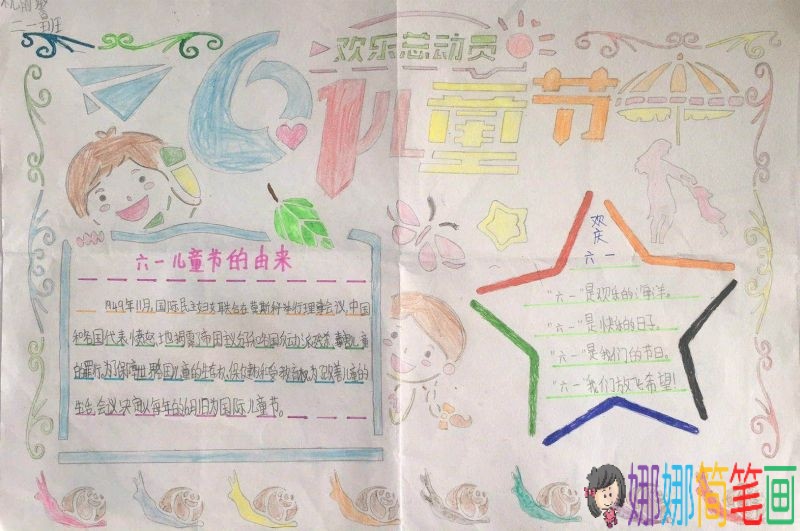 二一班
欢乐总动员
6.1儿童节
六一儿童节的由来
1949年11月,国际民主妇女联合会在莫斯科举行理事会议,中国
和各国代表愤怒地揭露了帝国主义分子和各国反动派残杀、毒害儿童
的罪行。为了保障世界各国儿童的生存权、保健权和受教育权,为了改善儿童的
生会会议决定以每年的6月1日为国际儿童节。
欢庆
六一
"六一"是欢乐的海洋。
"六一"是快乐的日子。
"六一"是我们的节日。
"六一"我们放飞希望!
娜娜简笔画